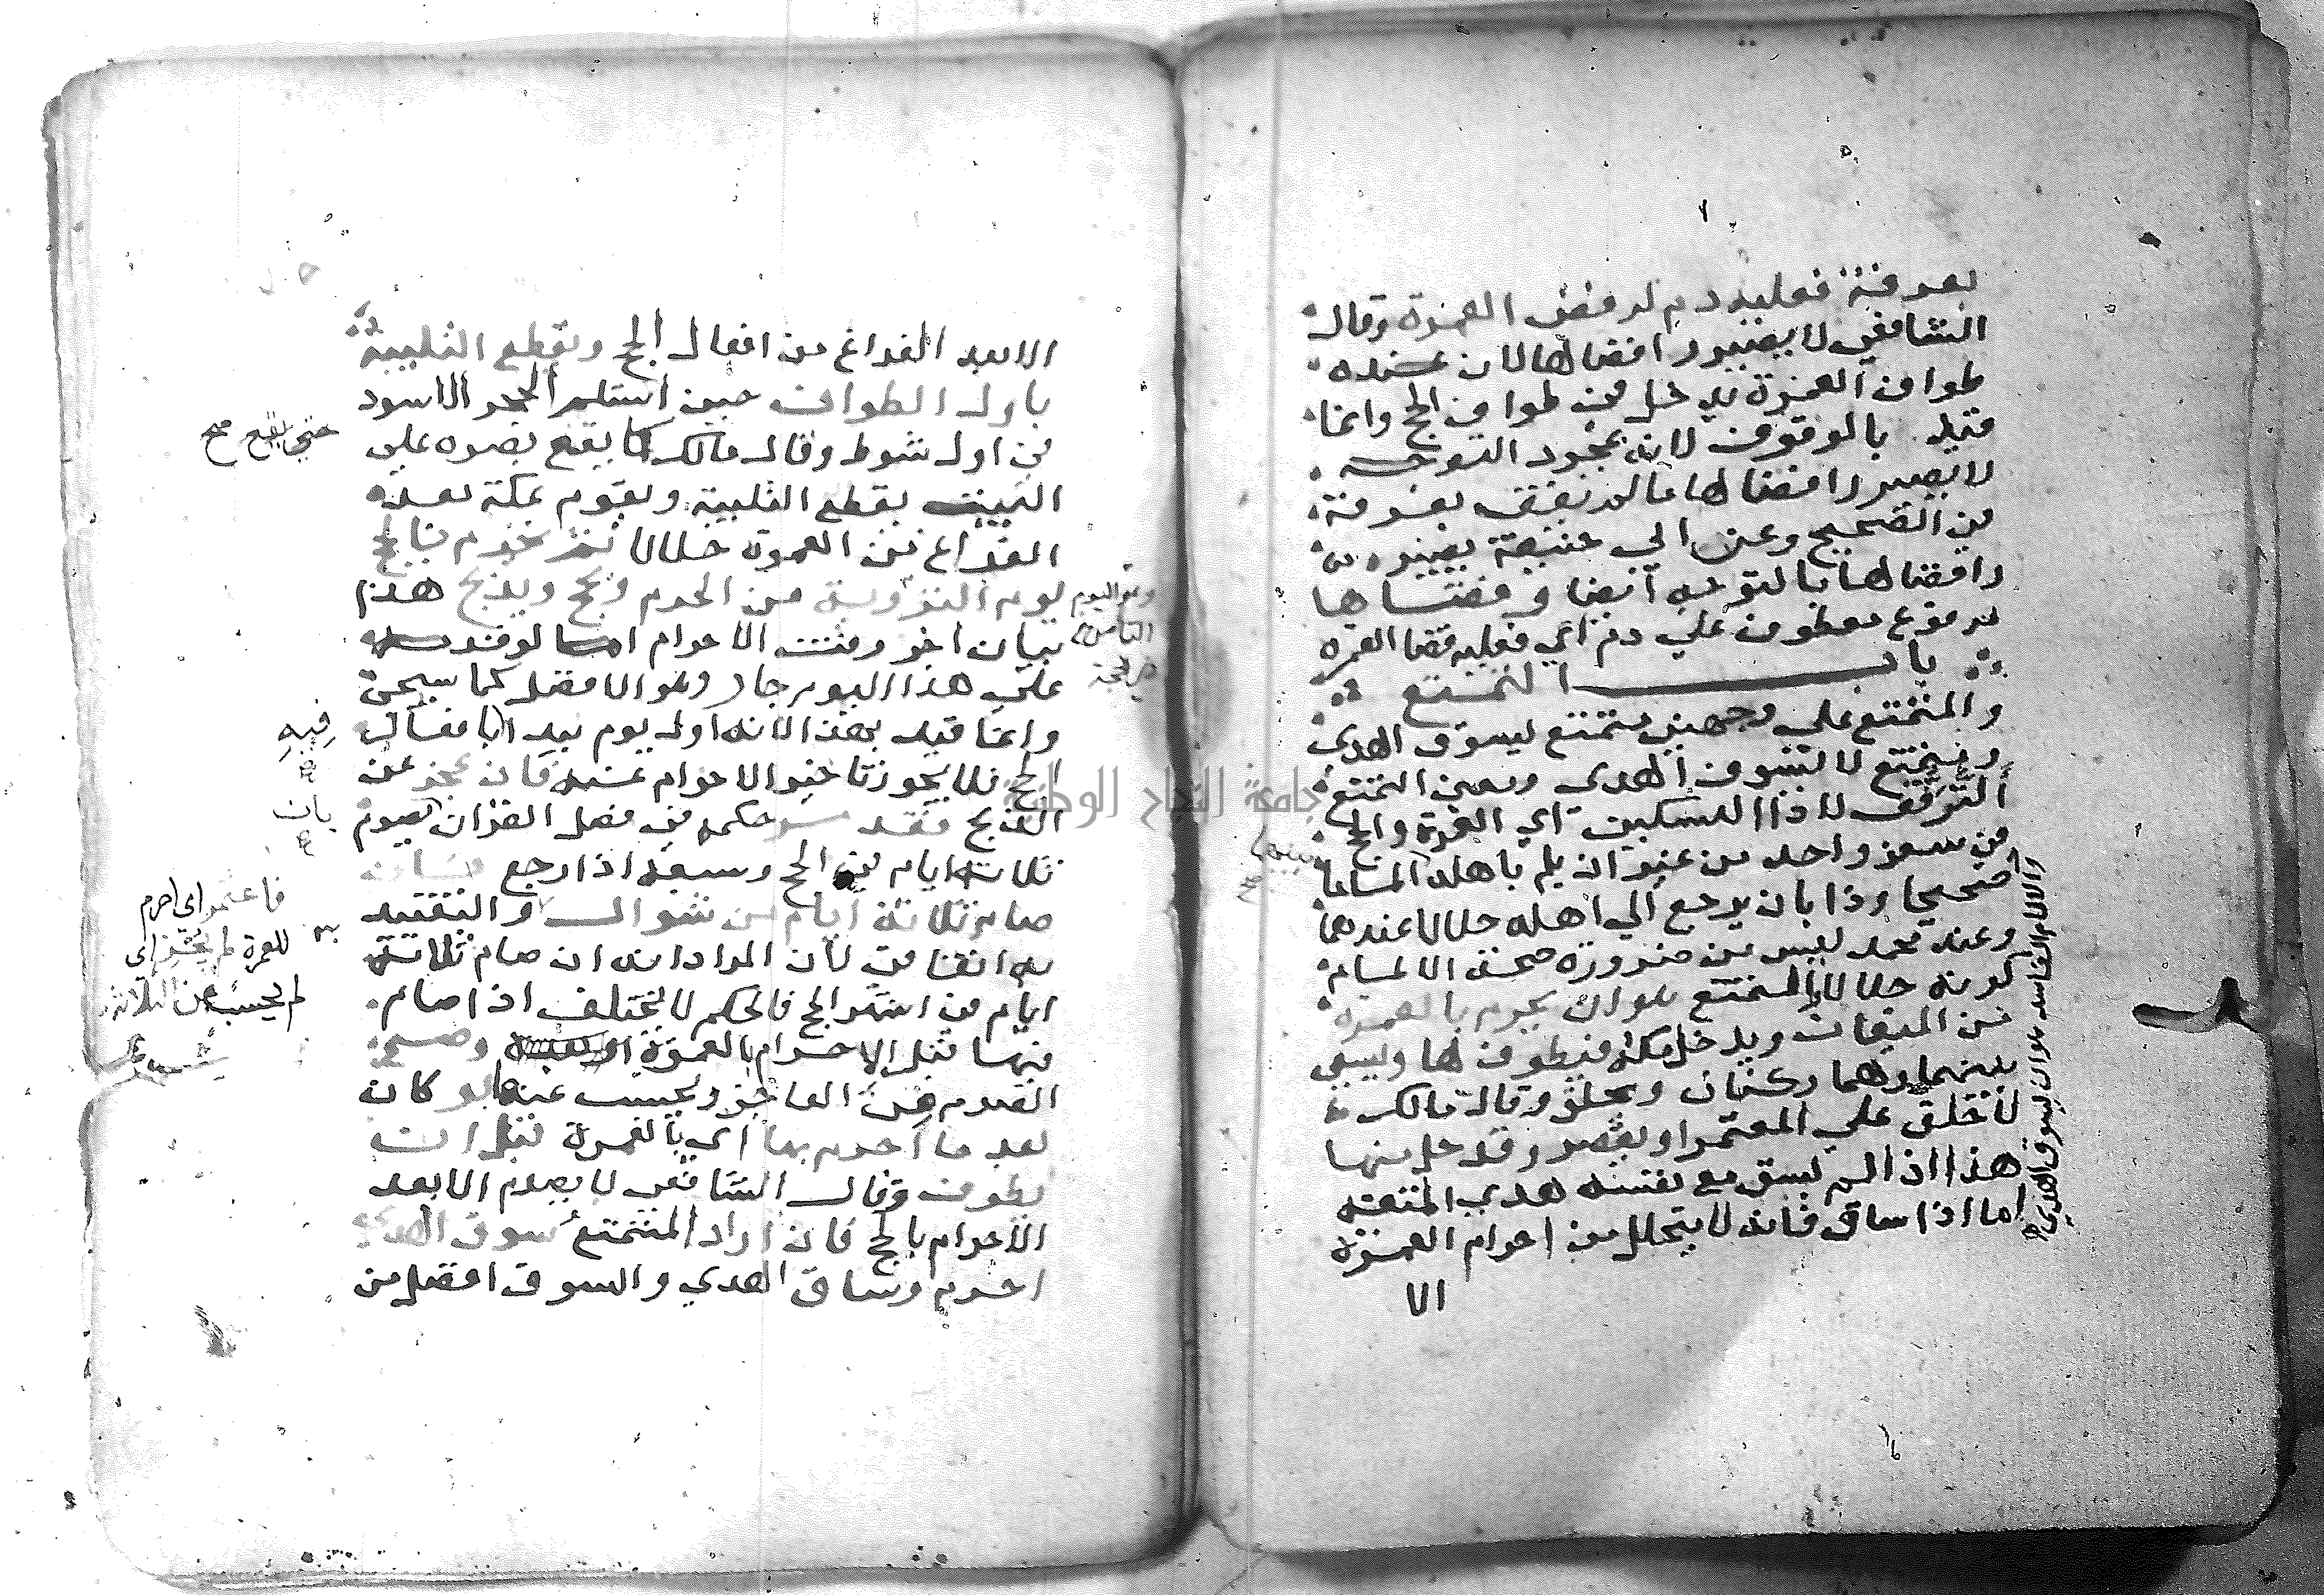 بعرفة فعليه دم لرفض العمرة وقال
الشافعي لا يصير رافضا لها لان عنده
طواف العمرة يدخل في طواف الحج وانما
قيد بالوقوف لانه بمجرد التوجه
لا يصير رافضا لها ما لم يقف بعرفة
في الصحيح وعن ابي حنيفة يصير
رافضا لها بالتوجه ايضا وقضاها
مرفوع معطوف علي دم اي فعليه قضا العمرة
باب التمتع
والمتمتع علي وجهين متمتع يسوق الهدي
ومتمتع لا يسوق الهدي ومعني التمتع
الترفق لاداء النسكين اي العمرة والحج
في سفر واحد من غير ان يلم باهله الماما
بينهما
صحيحا وذا بان يرجع الي اهله حلالا عندهما
وعند محمد ليس من ضرورة صحة الالمام
كونه حلالا فالمتمتع هو ان يحرم بالعمرة
من الميقات ويدخل مكة فيطوف لها ويسعي
بينهما وهما ركنان ويحلق وقال مالك
لا حلق علي المعتمر او يقصر وقد حل منها
هذا اذا لم يسق مع نفسه هدي المتعة
اما اذا ساق فانه لا يتحلل من احرام العمرة
الا
والالمام الفاسد هو ان يسوق الهدي
الا بعد الفراغ من افعال الحج ويقطع التلبية
باول الطواف حين استلم الحجر الاسود
في اول شوط وقال مالك كما يقع بصره علي
حتي يقع صح
البيت يقطع التلبية ويقوم بمكة بعده
الفراغ من العمرة حلالا ثم يحرم بالحج
يوم التروية من الحرم ويحج ويذبح هذا
وهو اليوم
الثامن
من الحجة
بيان اخر وقت الاحرام لو قدمه
علي هذا اليوم جاز وهو الافضل كما سيجئ
وانما قيد بهذا لانه اول يوم يبدا بافعال
فيه
الحج فلا يجوز تاخير الاحرام عنه فان عجز عن
الذبح فقد مر حكمه في فصل القران يصوم
بان
ثلاثة ايام في الحج وسبعة اذا رجع فان
صام ثلاثة ايام من شوال والتقييد
به اتفاقي لان المراد انه ان صام ثلاثة
ايام من اشهر الحج فالحكم لا يختلف اذا صام
فيها قبل الاحرام بالعمرة وصح
فاعتمر اي احرم
للعمرة لم يجز اي
لم يحسب عن الثلاثة
الصوم من العاجز ويحسب عنها لو كان
بعد ما احرم بها اي بالعمرة قبل ان
يطوف وقال الشافعي لا يصوم الا بعد
الاحرام بالحج فان اراد المتمتع سوق الهدي
احرم وساق الهدي والسوق افضل من
جامعة النجاح الوطنية